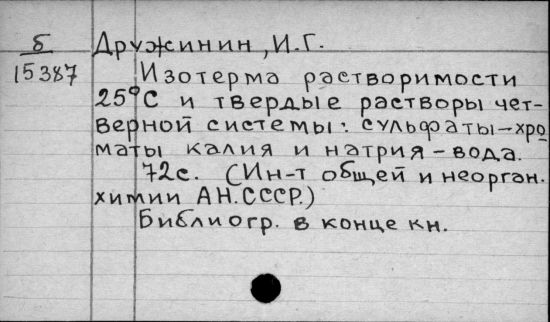 б Дружинин, И.Г.
15387 Изотерма растворимости
25°С и твердые растворы чет-
верной системы: сульфаты-хро
маты калия и натрия - вода.
72с. (Ин-т общей и неорган.
химии АН.СССР.)
Библиогр. в конце кн.